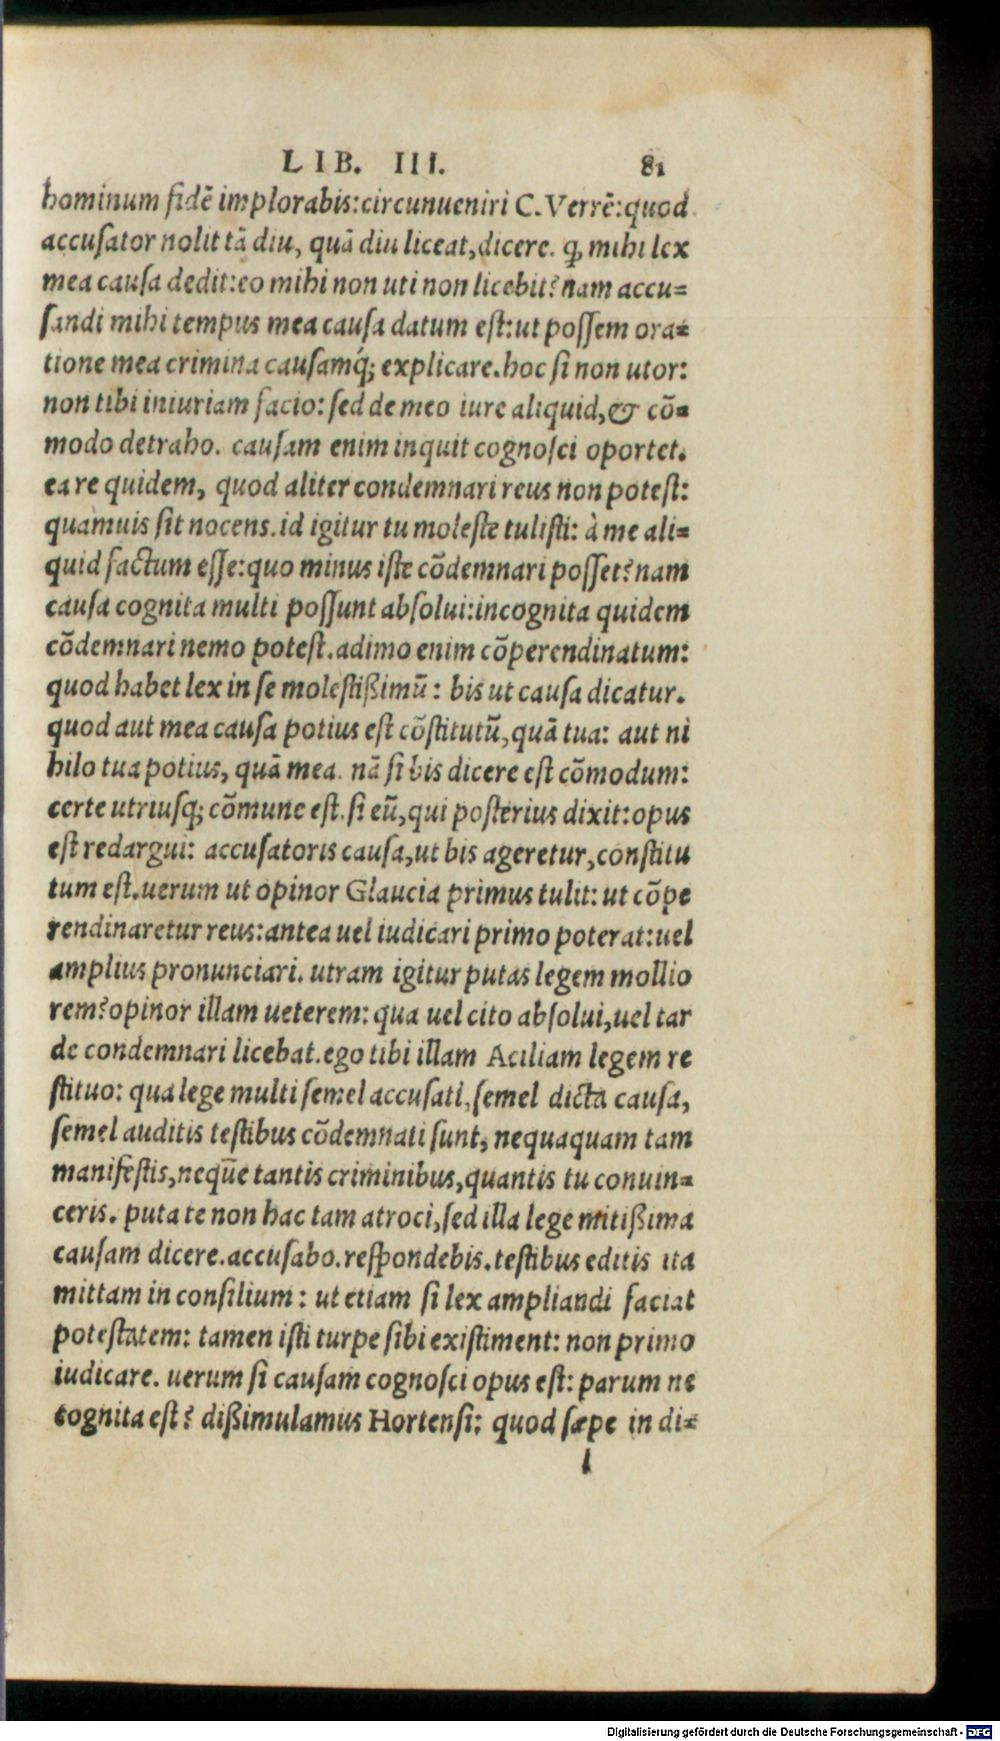 LIB. III. 81
hominum fidē implorabis:circunueniri C.Verrē:quod
accusator nolit tā diu, quā diu liceat,dicere. ꝙ mihi lex
mea causa dedit:eo mihi non uti non licebit?nam accu=
sandi mihi tempus mea causa datum est:ut possem ora=
tione mea crimina causamq́; explicare.hoc si non utor:
non tibi iniuriam facio:sed de meo iure aliquid,& cō=
modo detraho. causam enim inquit cognosci oportet.
ea re quidem, quod aliter condemnari reus non potest:
quamuis sit nocens.id igitur tu moleste tulisti: à me ali=
quid factum esse:quo minus iste cōdemnari posset?nam
causa cognita multi possunt absolui:incognita quidem
cōdemnari nemo potest.adimo enim cōperendinatum:
quod habet lex in se molestißimū: bis ut causa dicatur.
quod aut mea causa potius est cōstitutū,quā tua: aut ni
hilo tua potius, quā mea. nā si bis dicere est cōmodum:
certe utriusq; cōmune est.si eū,qui posterius dixit:opus
est redargui: accusatoris causa,ut bis ageretur,constitu
tum est.uerum ut opinor Glaucia primus tulit: ut cōpe
rendinaretur reus:antea uel iudicari primo poterat:uel
amplius pronunciari. utram igitur putas legem mollio
rem?opinor illam ueterem: qua uel cito absolui,uel tar
de condemnari licebat.ego tibi illam Aciliam legem re
stituo: qua lege multi semel accusati,semel dicta causa,
semel auditis testibus cōdemnati sunt, nequaquam tam
manifestis,neq̄ue tantis criminibus,quantis tu conuin=
ceris. puta te non hac tam atroci,sed illa lege mitißima
causam dicere.accusabo.respondebis.testibus editis ita
mittam in consilium: ut etiam si lex ampliandi faciat
potestatem: tamen isti turpe sibi existiment: non primo
iudicare. uerum si causam cognosci opus est: parum ne
cognita est? dißimulamus Hortensi: quod sæpe in di=
l
Digitalisierung gefördert durch die Deutsche Forschungsgemeinschaft - DFG